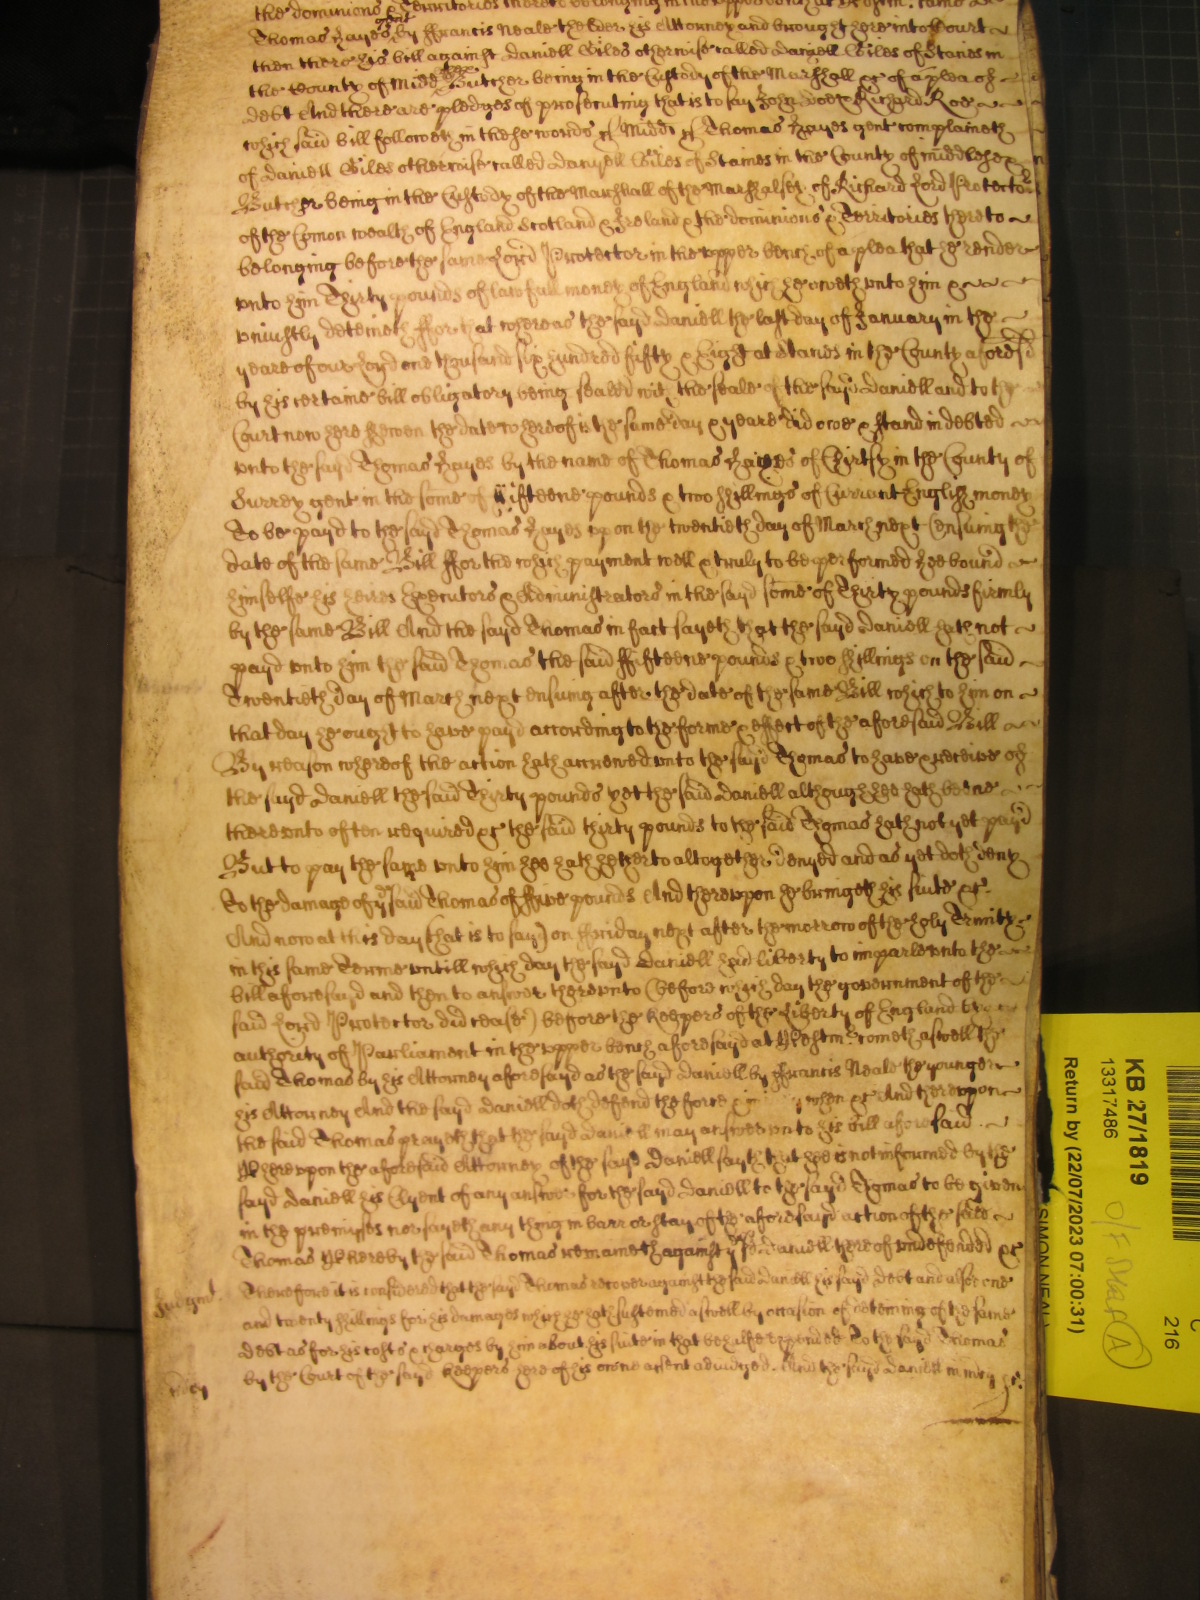 the dominions & Territories thereto belonging in the upper bench at Westm. came
Thomas Hayes gent by Ffrancis Neale the elder his Attorney and brought here into Court
then there his bill against Daniell Giles otherwise called Daniell Giles of Stanes in
the County of Midd Butcher being in the Custody of the Marshall &c of a plea of
debt And there are pledges of prosecuting that is to say John doe & Richard Roe
which said bill followeth in these words ss Midds ss Thomas Hayes gent complaineth
of Daniell Giles otherwise called Daniell Giles of Staines in the County of middlesex
Butcher being in the Custody of the Marshall of the Marshalsey of Richard Lord Protector
of the Comon wealth of England Scotland & Ireland & the dominions & Territories thereto
belonging before the same Lord Protector in the upper bench of a plea that he render
unto him Thirty pounds of lawfull money of England which he oweth unto him &
uniustly deteineth ffor that whereas the sayd Daniell the last day of January in the
yeare of our Lord one thousand six hundred fifty & Eight at Stanes in the County aforesd
by his certaine bill obligatory being sealed with the seale of the sayd Daniell and to the
Court now here shewen the date whereof is the same day & yeare did owe & stand indebted
unto the sayd Thomas Hayes by the name of Thomas Hayes of Chirtsy in the County of
Surrey gent in the some of ffifteene pounds & two shillings of Currant English money
To be payd to the sayd Thomas Hayes upon the twentieth day of March next ensuing the
date of the same Bill ffor the which payment well & truly to be performed hee bound
himselfe his heires Executors & Administrators in the sayd some of Thirty pounds firmly
by the same Bill And the sayd Thomas in fact sayeth that the sayd Daniell hath not
payd unto him the said Thomas the said ffifteene pounds & two shillings on the said
Twentieth day of March next ensuing after the date of the same Bill which to him on
that day he ought to have payd according to the forme & effect of the aforesaid Bill
By reason whereof the action hath accrewed unto the sayd Thomas to have & receive of
the sayd Daniell the said Thirty pounds yet the said Daniell although hee hath beene
thereunto often required &c the said thirty pounds to the said Thomas hath not yet payd
But to pay the same unto him hee hath hetherto altogether denyed and as yet doth deny
To the damage of ye said Thomas of ffive pounds And thereupon he bringeth his suite &c.
And now at this day (that is to say) on Friday next after the morrow of the holy Trinity
in this same Terme untill which day the sayd Daniell had liberty to imparle unto the
bill aforesayd and then to answer thereunto (before which day the government of the
said Lord Protector did cease) before the Keepers of the Liberty of England by
authority of Parliament in the upper bench aforesayd at Westm. cometh aswell the
said Thomas by his Attorney aforesayd as the sayd Daniell by Ffrancis Neale the younger
his Attorney And the sayd Daniell doth defend the force & when &c And thereupon
the said Thomas prayeth that the sayd Daniell may answer unto his bill aforesaid
Whereupon the aforesaid Attorney of the sayd Daniell sayth that hee is not informed by the
sayd Daniell his Clyent of any answer for the sayd Daniell to the sayd Thomas to be given
in the premisses nor sayeth any thing in barr or stay of the aforesayd action of the said
Thomas Whereby the said Thomas remaineth against ye sd Daniell thereof undefended &c
Judgmt. Therefore it is considered that the sayd Thomas recover against the said Daniell his sayd debt and alsoe one
and twenty shillings for his damages which he hath susteined aswell by occasion of deteining of the same
debt as for his costs & charges by him about his suite in that behalfe expended To the sayd Thomas
mercy by the Court of the sayd Keepers here of his owne assent adiudged. And the sayd Daniell in mercy &c.
KB 27/1819
13317486
Return by (22/07/2023 07:00:31)
SIMON NEAL
216
A